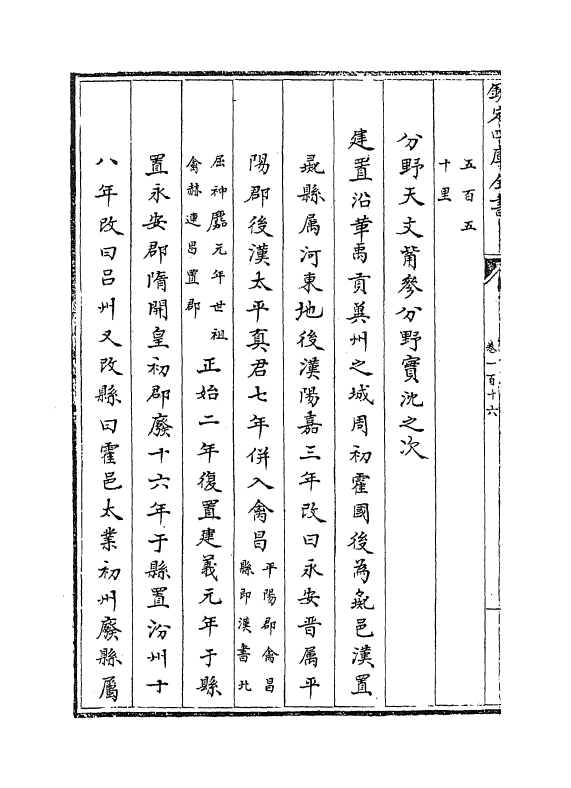 欽定四庫全書
卷一百十六
五百五
十里
分野天文觜參分野實沈之次
建置沿革禹貢冀州之城周初霍國後為彘邑漢置
彘縣属河東地後漢陽嘉三年改曰永安晉属平
陽郡後漢太平真君七年併入禽昌平陽郡禽昌
縣即漢書北
屈神䴥元年世祖
禽赫連昌置郡正始二年復置建義元年于縣
置永安郡隋開皇初郡廢十六年于縣置汾州十
八年改曰吕州又改縣曰霍邑太業初州廢縣屬